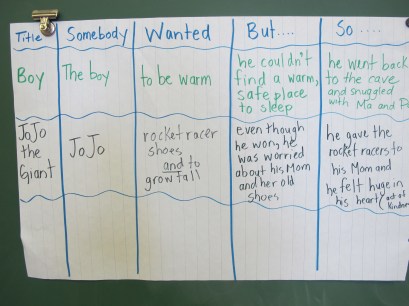 Title
Somebody
Wanted
But....
So ....
Boy
The boy
to be warm
he couldn't
find a warm,
safe place
to sleep
he went back
to the cave
and snuggled
with Ma and
JoJo
the
Giant
JoJo
rocket racer
shoes
and to
grow tall
even though
he won, he
was worried
about his Mom
and her old
shoes
he gave the
rocket racers to
his Mom and
he felt huge in
his heart (act of